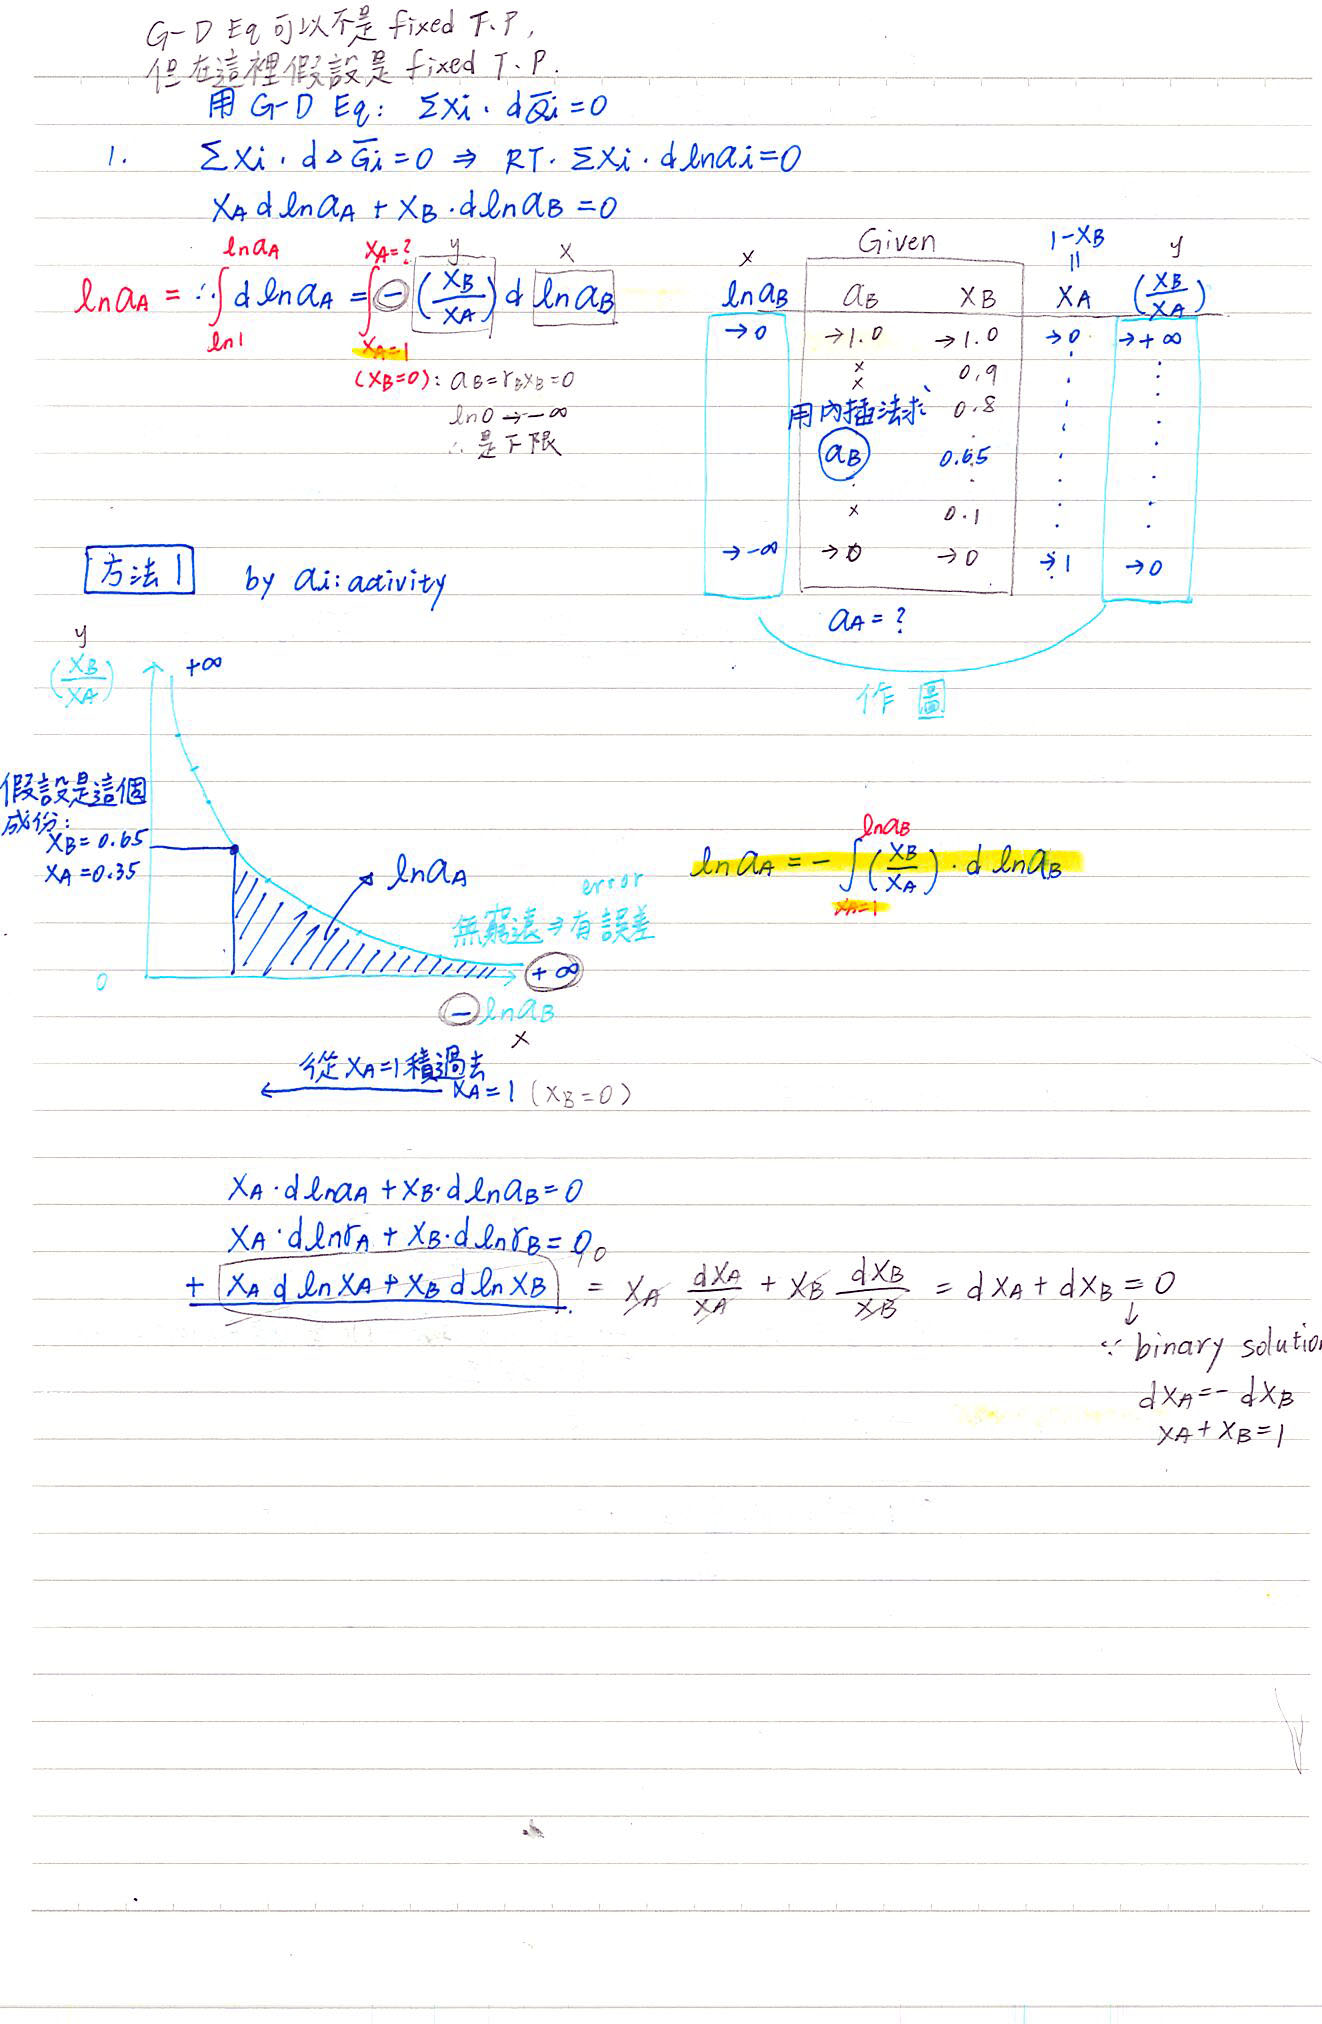 G-D Eq 可以不是 fixed T.P,
但在這裡假設是 fixed T.P.
用 G-D Eq: ΣXi · dQ̄i = 0
1. ΣXi · d△Ḡi = 0 ⇒ RT · ΣXi · d ln ai = 0
XA d ln aA + XB · d ln aB = 0
ln aA = ∴ ∫_{ln1}^{ln aA} d ln aA = ∫_{XA=1}^{XA=?} - (XB/XA) d ln aB
y x
(XB=0): aB = rB XB = 0
ln0 → -∞
∴ 是下限
x Given 1-XB y
=
ln aB aB XB XA (XB/XA)
→0 →1.0 →1.0 →0 →+∞
x 0.9
x
用內插法求 0.8
aB 0.65
x 0.1
→-∞ →0 →0 →1 →0
aA = ?
作圖
方法1 by ai: activity
y
(XB/XA)
+∞
假設是這個
成份:
XB = 0.65
XA = 0.35
ln aA
error
無窮遠 ⇒ 有誤差
0
+∞
- ln aB
x
從 XA=1 積過去
XA = 1 (XB = 0)
ln aA = - ∫_{XA=1}^{ln aB} (XB/XA) · d ln aB
XA · d ln aA + XB · d ln aB = 0
XA · d ln rA + XB · d ln rB = 0
+ XA d ln XA + XB d ln XB = XA dXA/XA + XB dXB/XB = dXA + dXB = 0
0
↓
∵ binary solution
dXA = - dXB
XA + XB = 1